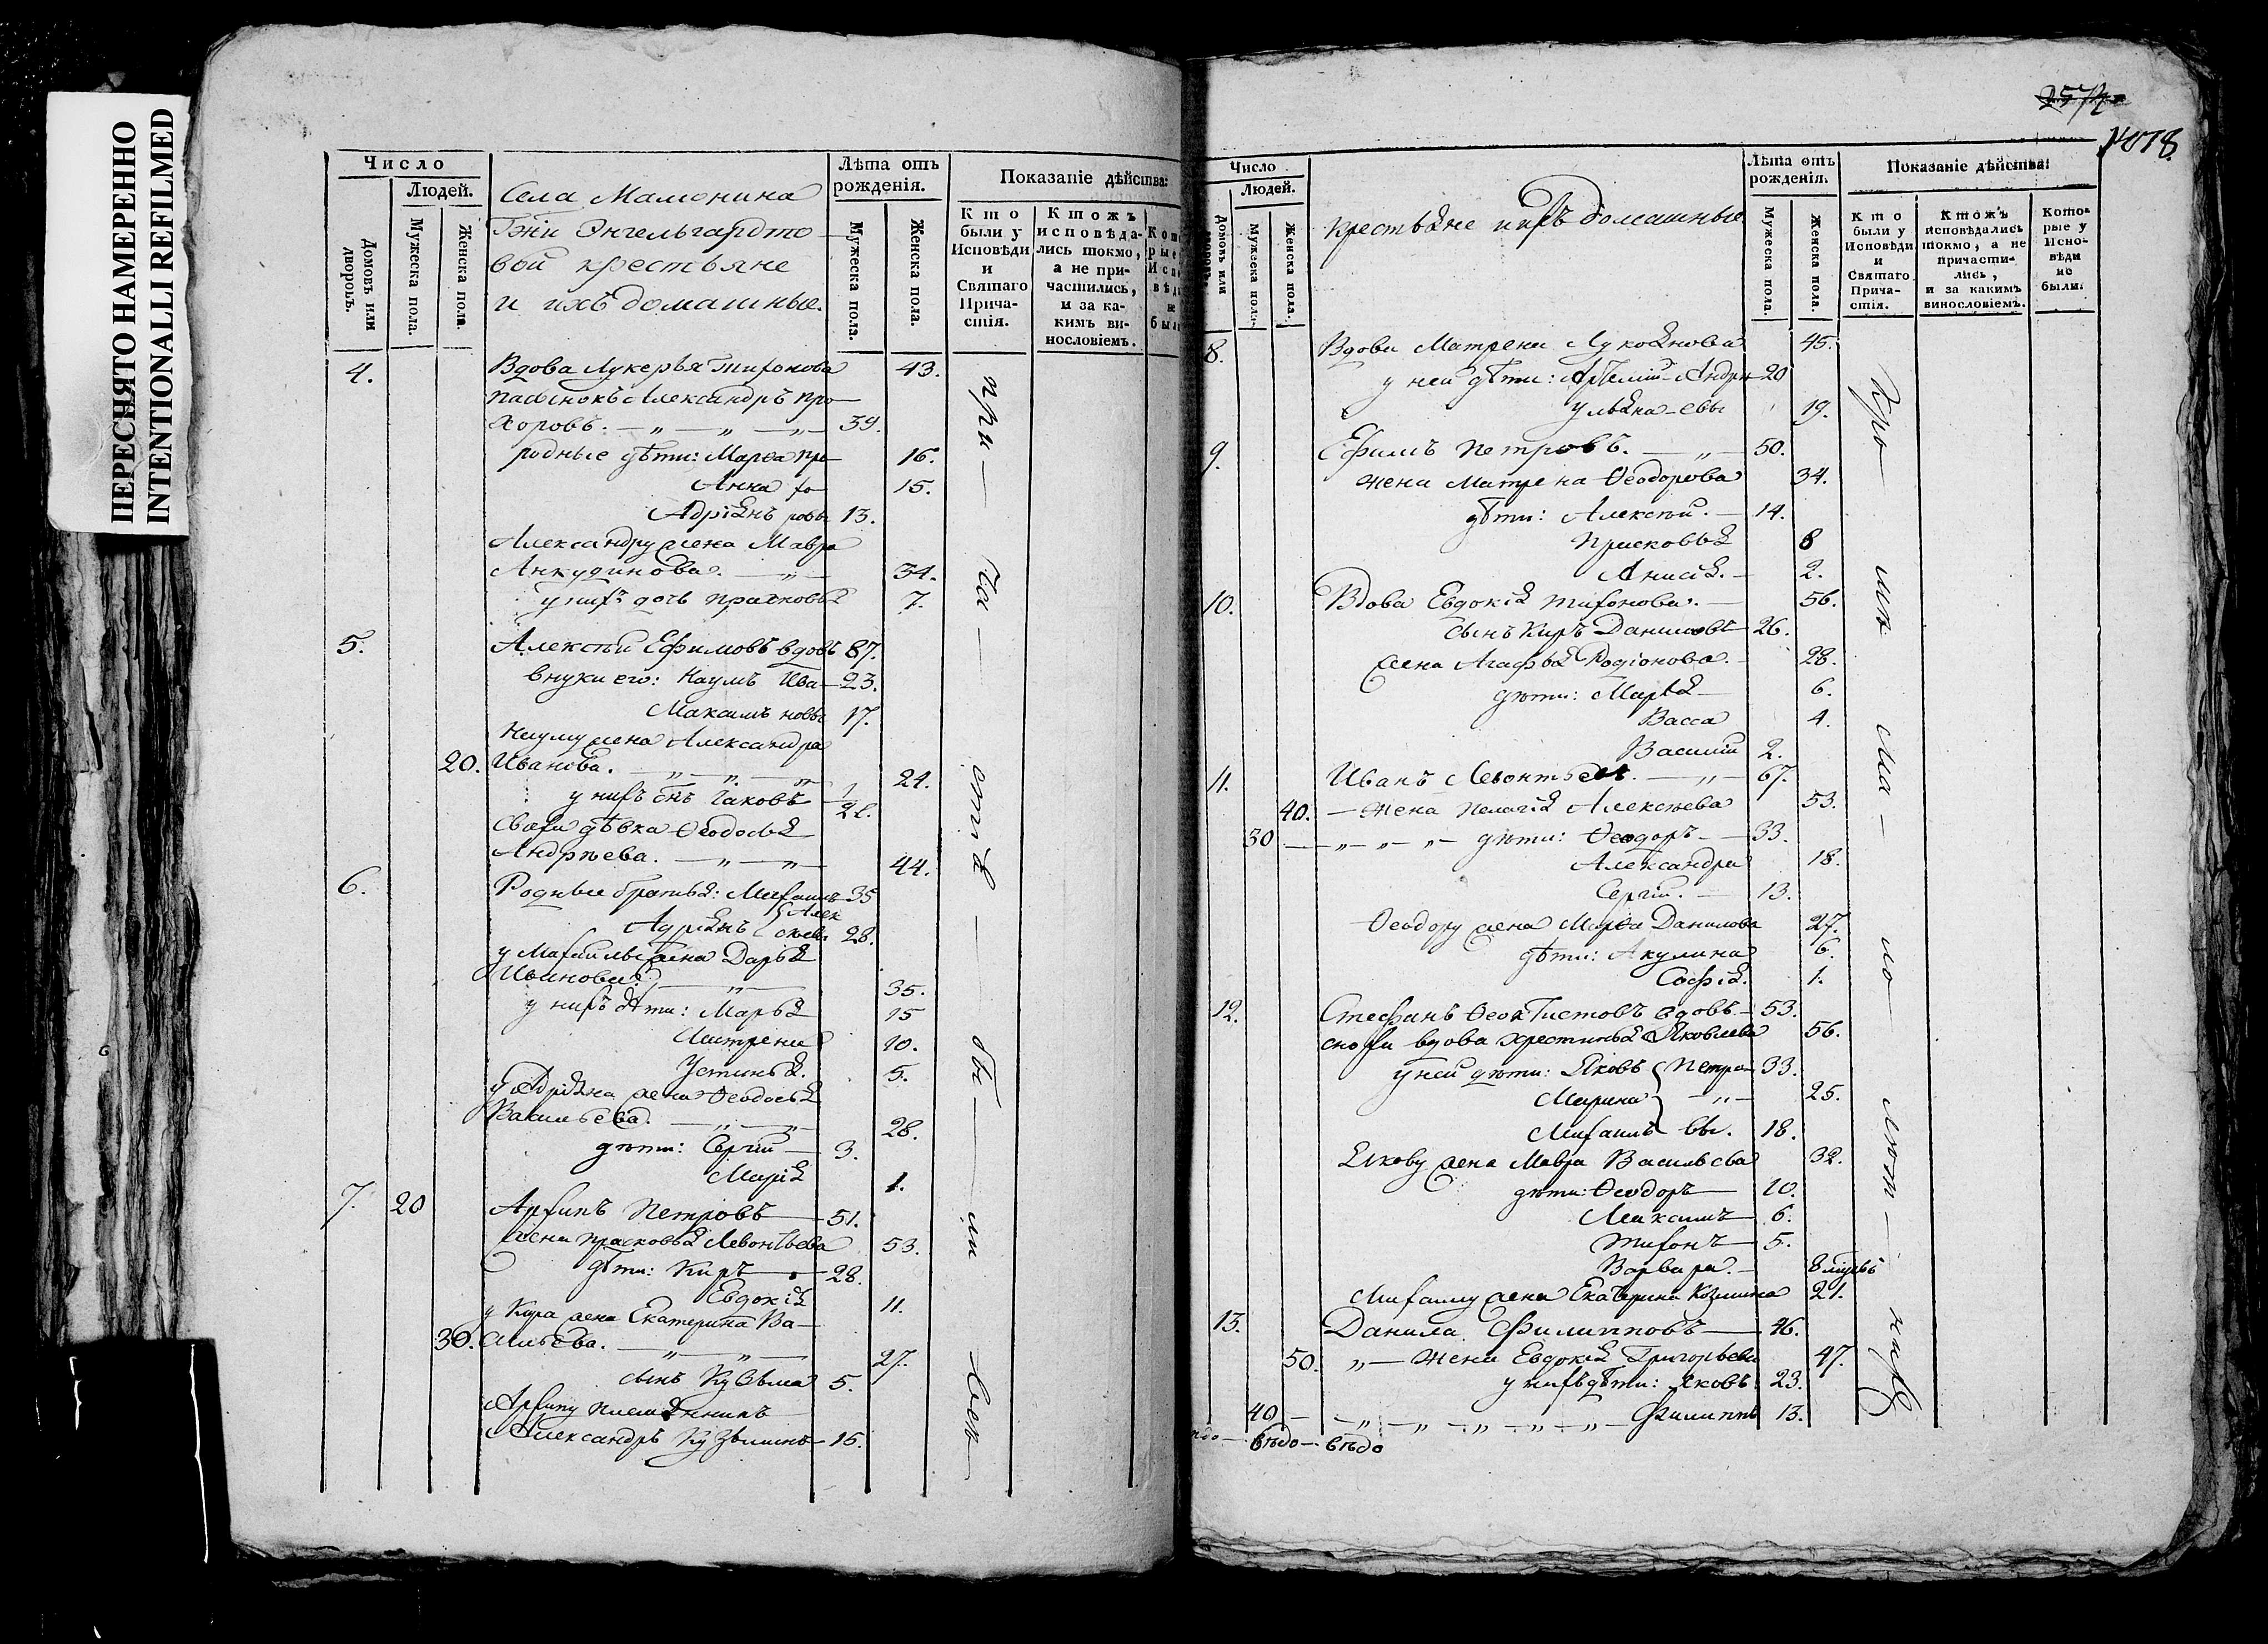 ПЕРЕСНЯТО НАМЕРЕННО
INTENTIONALLI REFILMED
Число
Людей.
Домовъ или дворовъ.
Мужеска пола.
Женска пола.
Села Мамонина
Гжи Энгельгардто
вой крестьяне
и ихъ домашные.
Лѣта отъ рожденія.
Мужеска пола.
Женска пола.
Показаніе дѣйства:
Кто были у Исповѣди и Святаго Причастія.
Ктожъ исповѣдались токмо, а не причастились, и за какимъ винословіемъ.
4. Вдова Лукерья Тихонова 43.
пасынокъ Александръ Про
хоровъ. — „ — „ — „ — 39.
родные дѣти: Марѳа Про 16.
Анна хо 15.
Адріянъ ровы 13.
Александру жена Мавра
Анкудинова. — „ — 34.
у нихъ дочь Прасковья 7.
5. Алексѣй Ефимовъ вдовъ 87.
внуки его: Наумъ Ива— 23.
Максимъ новы 17.
Науму жена Александра
20. Иванова. — „ — „ — „ 24.
у нихъ снъ Іаковъ — 1/2 г.
дѣвка Ѳеодосья
Андрѣева. — „ — „ — 44.
6. Родные братья: Михаилъ 35
Алек
Адріянъ сѣевы 28.
у Михаилы жена Дарья
Иванова. — „ — 35.
у нихъ дѣти: Марья 15
Матрена 10.
Устинья. 5.
у Адріяна жена Ѳеодосья
Васильева. — „ — „ — 28.
дѣти: Сергій — 3.
Марія 1.
7. 20 Архипъ Петровъ — 51.
жена Прасковья Левонтьева 53.
дѣти: Киръ — 28.
Евдокія 11.
у Кира жена Екатерина Ва—
30. сильева. — „ — „ — 27.
сынъ Кузьма 5.
Архипу племянникъ
Александръ Кузьминъ — 15.
при — ча — стія — бы — ли — всѣ
2574
1018.
Число
Людей.
Домовъ или
Мужеска пола.
Женска пола.
крестьяне ихъ домашные
Лѣта отъ рожденія.
Мужеска пола.
Женска пола.
Показаніе дѣйства:
Кто были у Исповѣди и Святаго Причастія.
Ктожъ исповѣдались токмо, а не причастились, и за какимъ винословіемъ.
Которые у Исповѣди не были.
8. Вдова Матрена Лукоянова 45.
у ней дѣти: Артемій Андре 20
Ульяна — евы 19.
9. Ефимъ Петровъ. — „ — 50.
жена Матрена Ѳеодорова 34.
дѣти: Алексѣй. — 14.
Прасковья 8
Анисія. — 2.
10. Вдова Евдокія Тихонова. — 56.
сынъ Киръ Даниловъ — 26.
жена Агафья Родіонова. — 28.
дѣти: Марья — 6.
Васса 4.
Василій 2.
11. Иванъ Левонтьевъ. — „ — 67.
40. — жена Пелагія Алексѣева 53.
30 — „ — „ — „ — дѣти: Ѳеодоръ — 33.
Александра 18.
Сергій. — 13.
Ѳеодору жена Марѳа Данилова 27.
дѣти: Акулина 6.
Софія. 1.
12. Стефанъ Ѳеоктистовъ вдовъ. — 53.
сноха вдова Хрестинья Яковлева 56.
у ней дѣти: Яковъ Петро— 33.
Марина — „ — 25.
Михаилъ вы. 18.
Якову жена Мавра Васильева 32.
дѣти: Ѳеодоръ — 10.
Максимъ 6.
Тихонъ 5.
Варвара. — 8 мцовъ
Михаилу жена Екатерина Козмина 21.
13. Данила Филипповъ — 46.
50. „ — жена Евдокія Григорьева 47.
у нихъ дѣти: Яковъ 23.
40 — „ — „ — „ — „ — „ — Филиппъ 13.
вѣдо — вѣдо